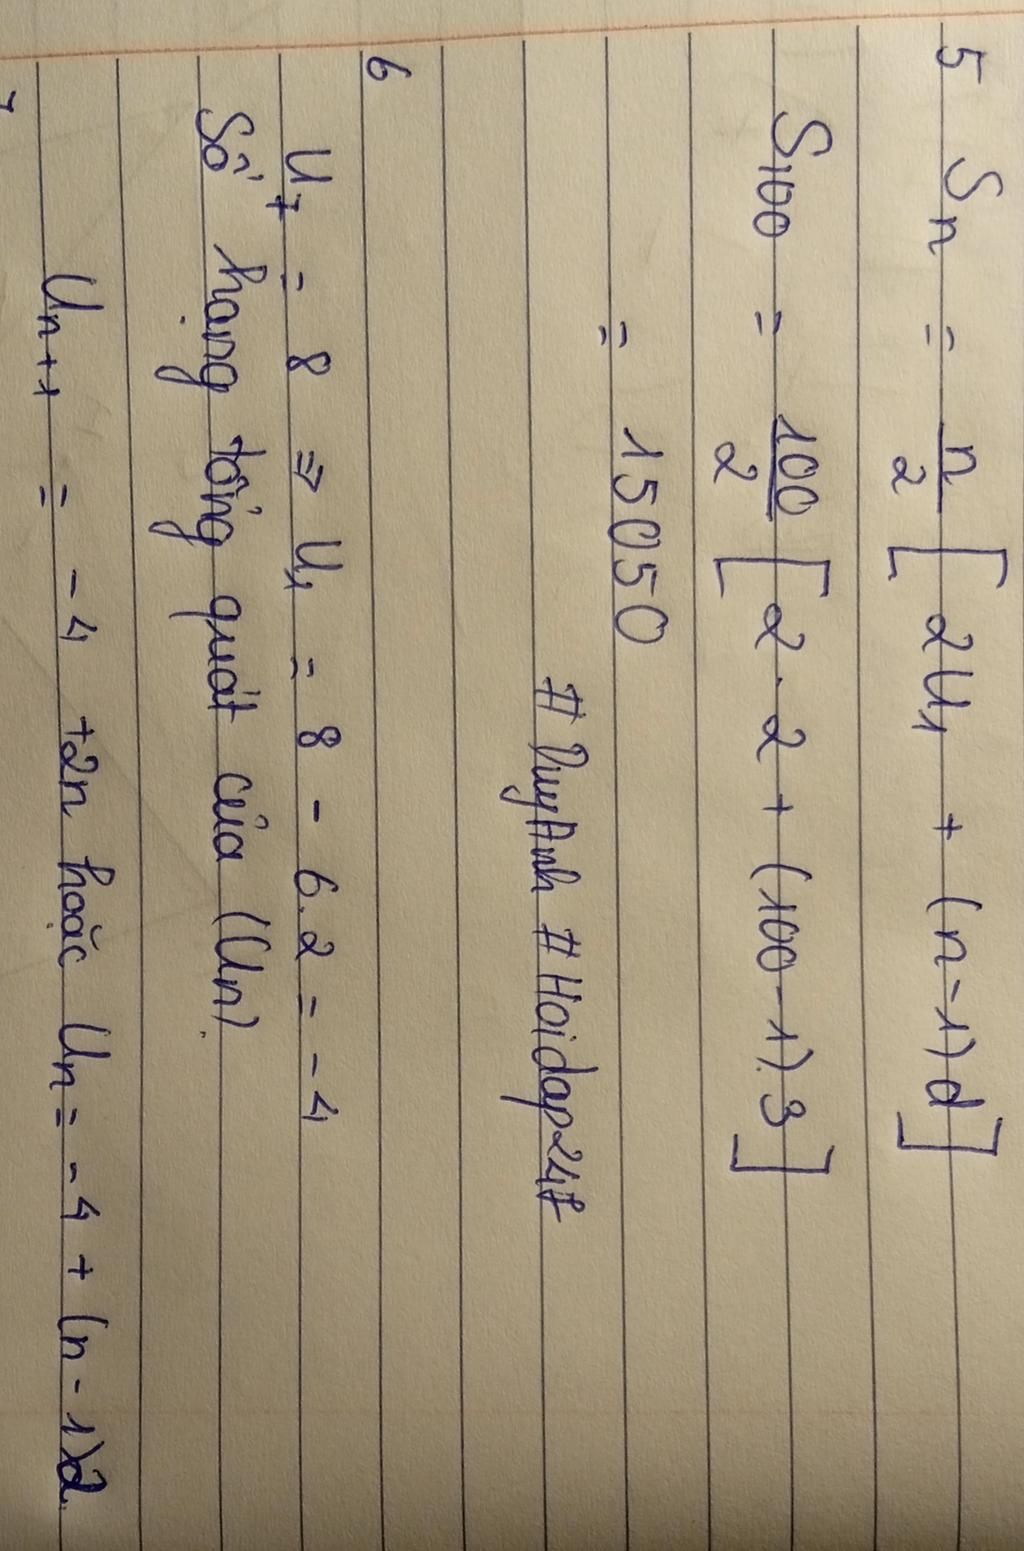 5 Sn = n/2 [2U1 + (n-1)d]
S100 = 100/2 [2.2 + (100-1).3]
= 15050
#DuyAnh #Hoidap247
6
U7 = 8 => U1 = 8 - 6.2 = -4
Số hạng tổng quát của (Un)
Un+1 = -4 +2n hoặc Un = -4 + (n-1)2.